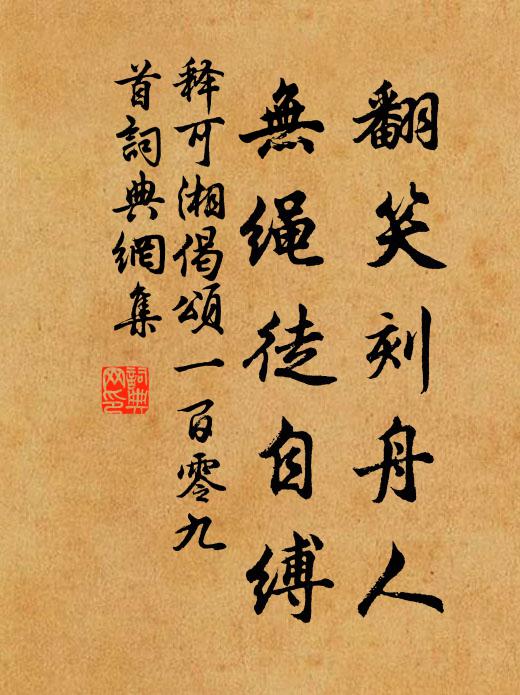 翻笑刻舟人
無绳徒自縛
释可湘偈頌一百零九
首詞典網集
詞典
网印